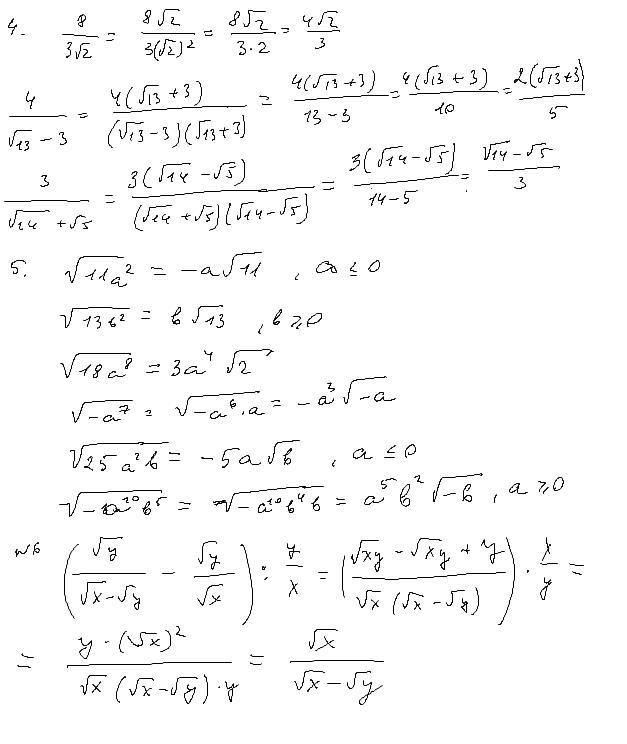 4. 8/(3√2) = 8√2/(3(√2)²) = 8√2/(3·2) = 4√2/3
4/(√13 - 3) = 4(√13 + 3)/((√13 - 3)(√13 + 3)) = 4(√13 + 3)/(13 - 3) = 4(√13 + 3)/10 = 2(√13 + 3)/5
3/(√14 + √5) = 3(√14 - √5)/((√14 + √5)(√14 - √5)) = 3(√14 - √5)/(14 - 5) = (√14 - √5)/3
5. √(11a²) = -a√11 , a ≤ 0
√(13b²) = b√13 , b ≥ 0
√(18a⁸) = 3a⁴√2
√(-a⁷) = √(-a⁶·a) = -a³√(-a)
√(25a²b) = -5a√b , a ≤ 0
√(-a¹⁰b⁵) = √(-a¹⁰b⁴b) = a⁵b²√(-b) , a ≥ 0
№6 (√y/(√x - √y) - √y/√x) : y/x = ((√xy - √xy + y)/(√x(√x - √y))) · x/y =
= y·(√x)²/(√x(√x - √y)·y) = √x/(√x - √y)